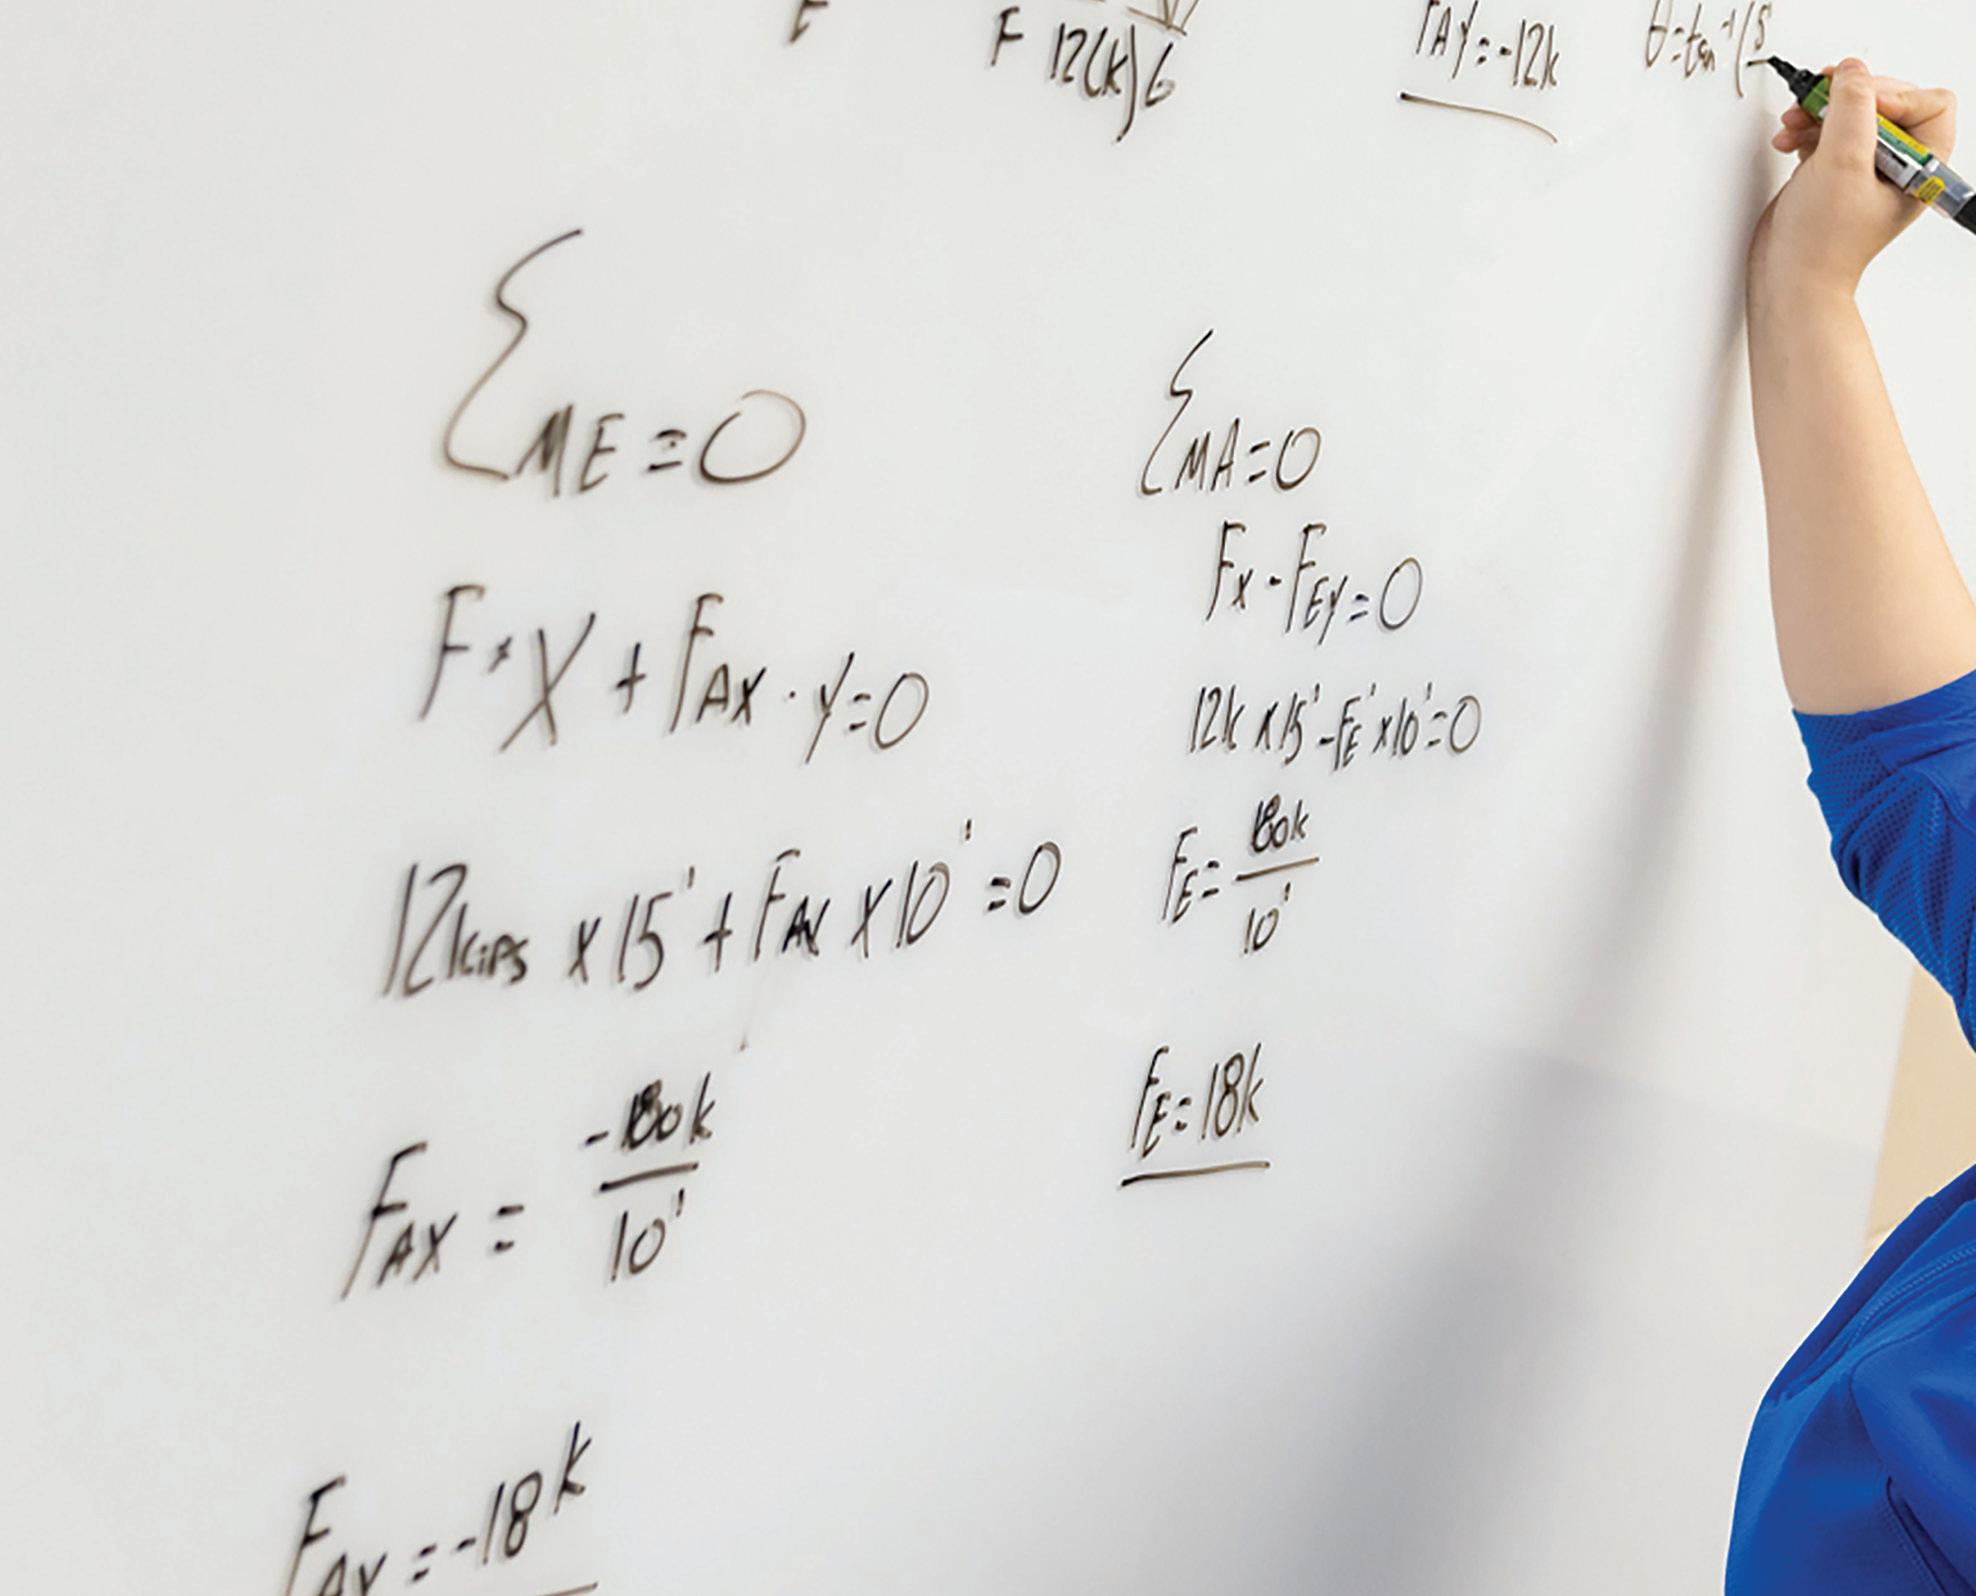 E
F 12(k) 6
FAY = -12k
θ = tan⁻¹(5
ΣME = 0
F * X + FAX · Y = 0
12kips x 15' + FAX x 10' = 0
FAX = -180k / 10'
FAX = -18k
ΣMA = 0
Fx - FEY = 0
12k x 15' - FE' x 10' = 0
FE = 180k / 10'
FE = 18k